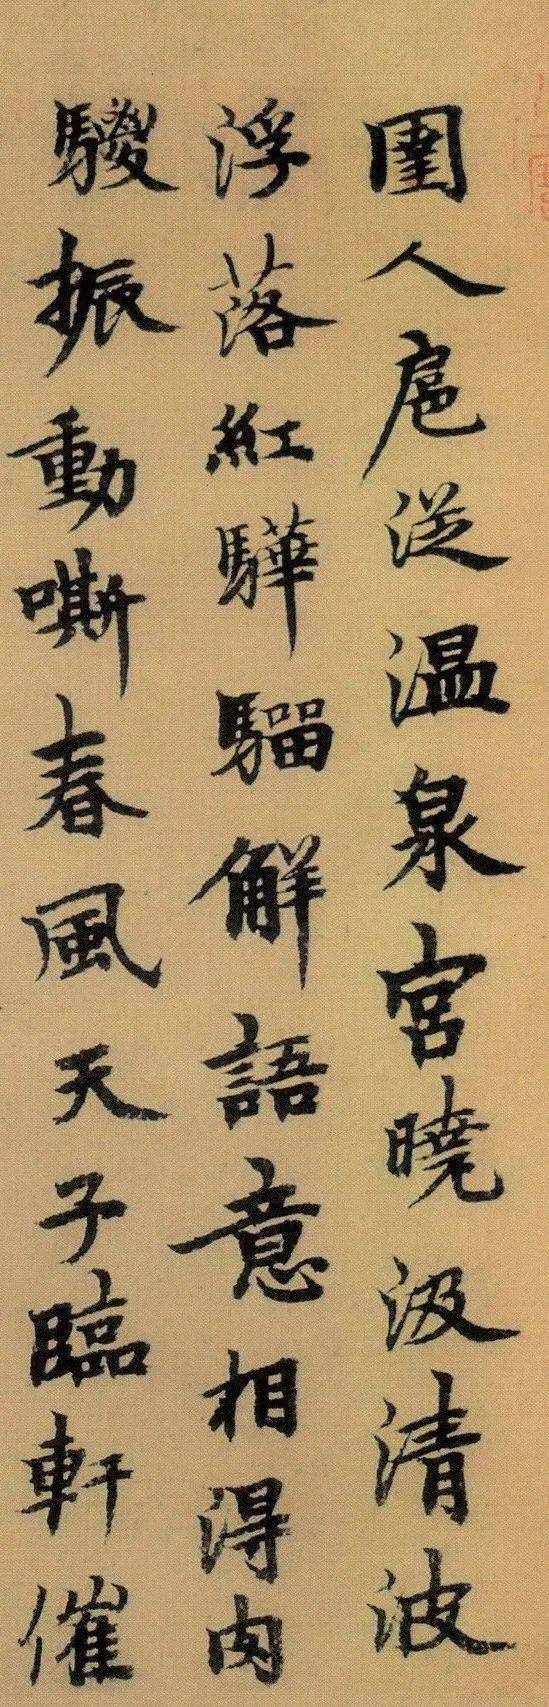 圉人扈從温泉宮曉汲清波
浮落紅驊騮解語意相得肉
騣振動嘶春風天子臨軒催